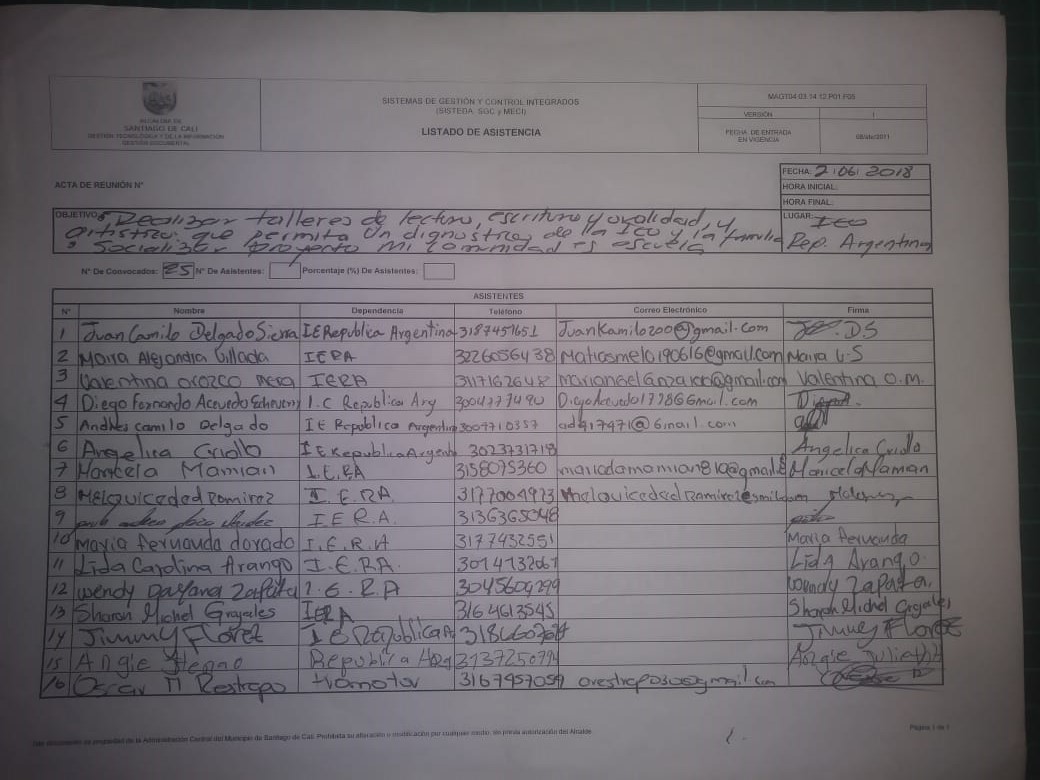 ALCALDÍA DE
SANTIAGO DE CALI
GESTIÓN TECNOLÓGICA Y DE LA INFORMACIÓN
GESTIÓN DOCUMENTAL
SISTEMAS DE GESTIÓN Y CONTROL INTEGRADOS
(SISTEDA, SGC y MECI)
LISTADO DE ASISTENCIA
MAGT04.03.14.12.P01.F05
VERSIÓN 1
FECHA DE ENTRADA
EN VIGENCIA
ACTA DE REUNIÓN N°
FECHA: 2 06 2018
HORA INICIAL:
HORA FINAL:
LUGAR: IEO
Rep. Argentina
OBJETIVO: Realizar talleres de lectura, escritura y oralidad, y
que permita un de la IEO y la familia
Socializar proyecto mi comunidad es escuela
N° De Convocados: 25 N° De Asistentes: Porcentaje (%) De Asistentes:
ASISTENTES
N° Nombre Dependencia Teléfono Correo Electrónico Firma
1 Juan Camilo Delgado Sierra IE Republica Argentina 3187457651 JuanKamilo200@gmail.com D.S
2 Maria Alejandra Villada IERA 3226056438 Matiasmelo190616@gmail.com
3 Valentina orozco mera IERA Valentina O.M.
4 Diego Fernando Acevedo I.C Republica Arg 3004777490
5 Andres camilo Delgado IE Republica Argentina 3007710357
6 Angelica Criollo IE Republica Argent 3023731718 Angelica Criollo
7 Maricela Mamian I.E.RA 3158075360 Maricela Mamian
8 Melquiceded Ramirez I.E.RA. 3177004973
9 I.E.R.A. 3136365048
10 Maria fernanda dorado I.E.R.A 3177432551 Maria Fernanda
11 Lida Carolina Arango I.E.RA. Lida Arango
12 wendy Dayana Zapata I.E.RA 3045604299 Wendy Zapata.
13 Sharon Michel Grajales IERA 3164613545 Sharon Michel Grajales
14 Jimmy Florez IE Republica A Jimmy Florez
15 Angie Henao Republica Arg Angie Julieth
16 Oscar M Restrepo Promotor 3167457059 orestrep030@gmail.com
Este documento es propiedad de la Administración Central del Municipio de Santiago de Cali. Prohibida su alteración o modificación por cualquier medio, sin previa autorización del Alcalde.
Página 1 de 1